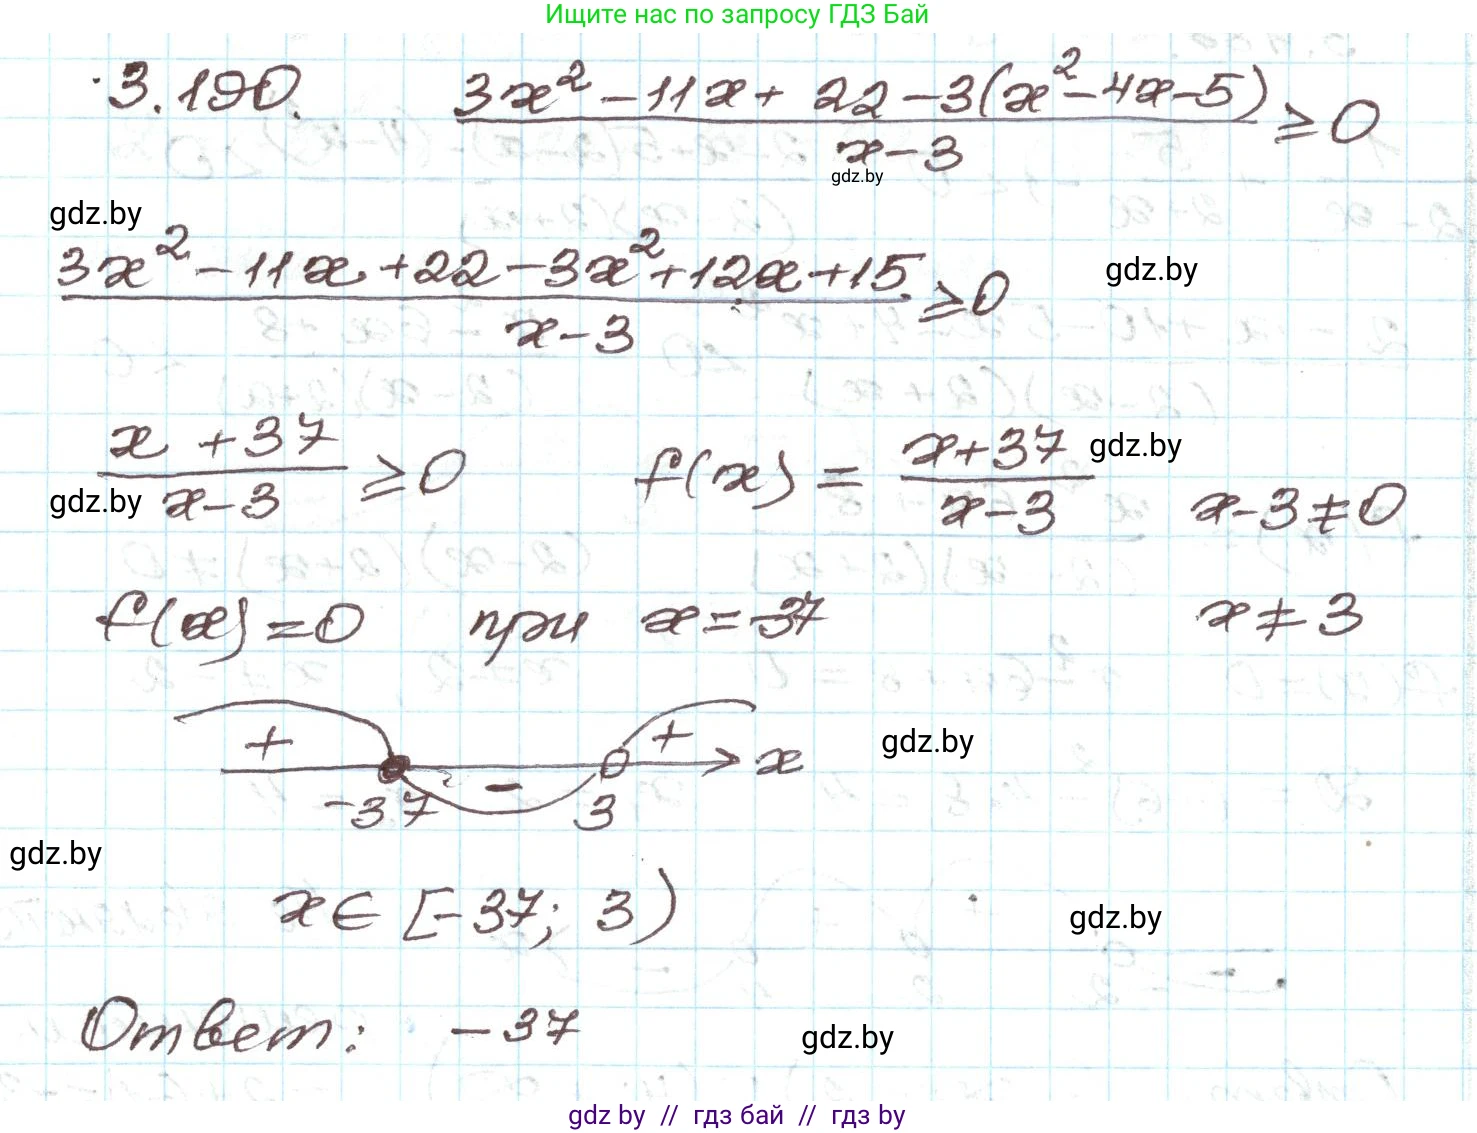 Ищите нас по запросу ГДЗ Бай
3.190. (3x² - 11x + 22 - 3(x² - 4x - 5))/(x - 3) ≥ 0
gdz.by
gdz.by
(3x² - 11x + 22 - 3x² + 12x + 15)/(x - 3) ≥ 0
gdz.by
(x + 37)/(x - 3) ≥ 0 f(x) = (x + 37)/(x - 3) x - 3 ≠ 0
gdz.by
gdz.by
f(x) = 0 при x = -37 x ≠ 3
+ - + x
gdz.by
-37 3
gdz.by
x ∈ [-37; 3)
gdz.by
Ответ: -37
gdz.by
gdz by // гдз бай // гдз by